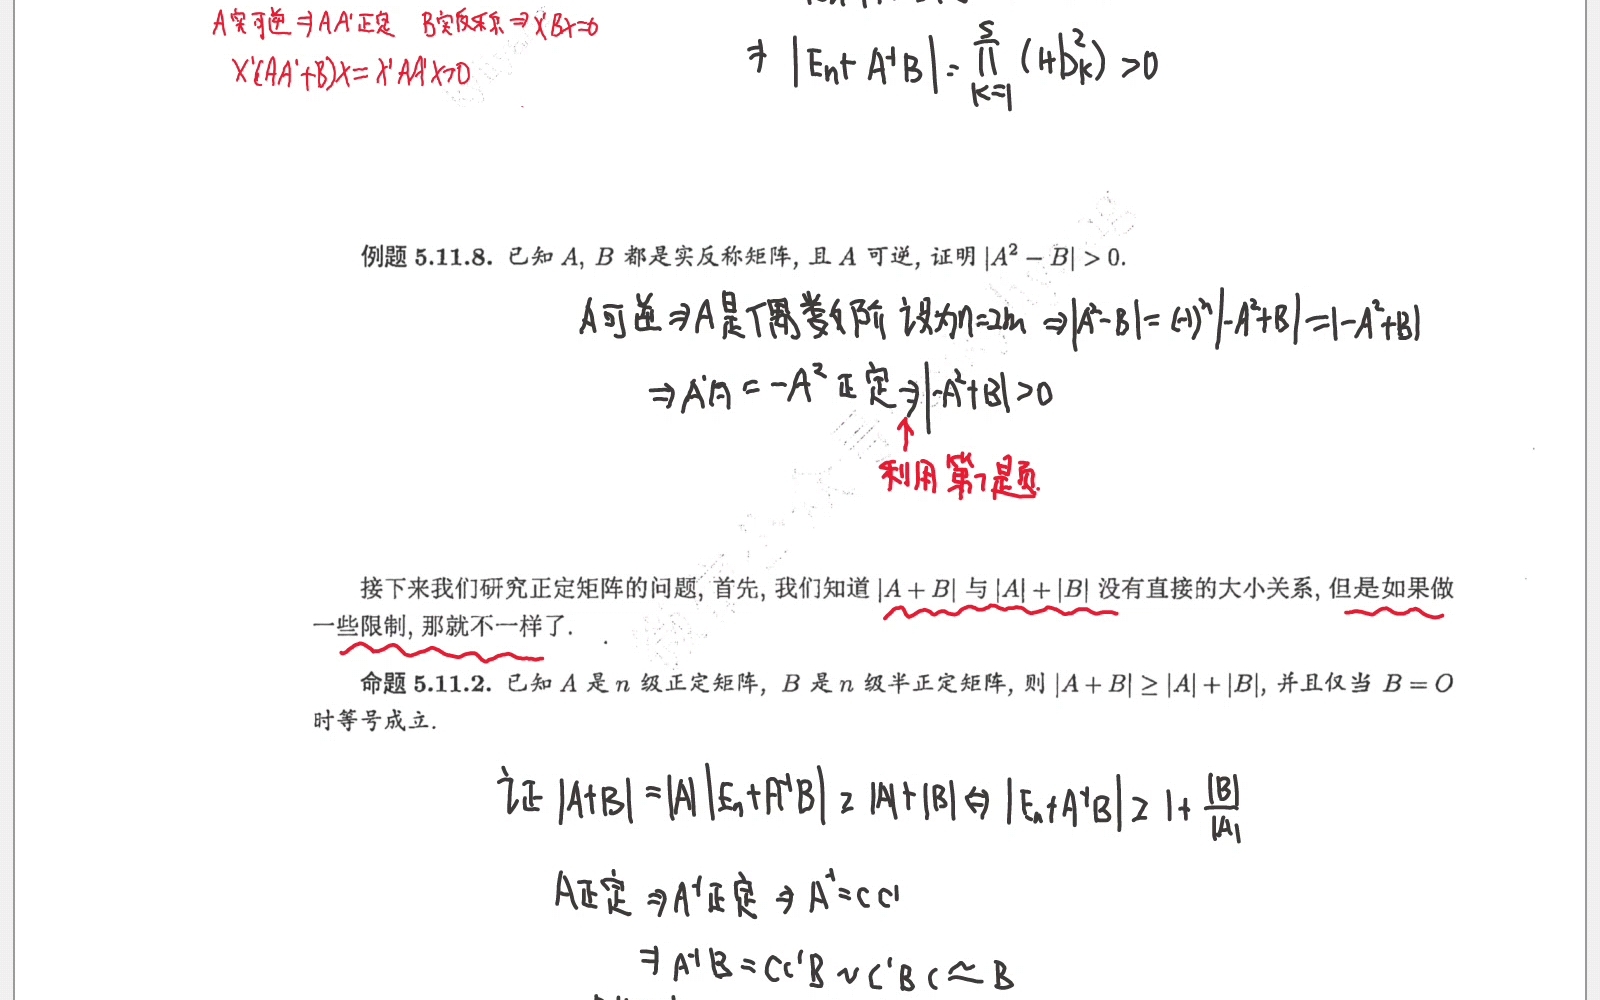 A实可逆⇒AA'正定 B实反称⇒X'BX=0
X'(AA'+B)X=X'AA'X>0
⇒|En+A⁻¹B|=∏(k=1→s)(1+b²k)>0
例题 5.11.8. 已知 A, B 都是实反称矩阵, 且 A 可逆, 证明 |A² − B| > 0.
A可逆⇒A是偶数阶 设为n=2m ⇒|A²-B|=(-1)ⁿ|-A²+B|=|-A²+B|
⇒A'A=-A²正定⇒|-A²+B|>0
↑
利用第7题
接下来我们研究正定矩阵的问题, 首先, 我们知道 |A + B| 与 |A| + |B| 没有直接的大小关系, 但是如果做
一些限制, 那就不一样了.
命题 5.11.2. 已知 A 是 n 级正定矩阵, B 是 n 级半正定矩阵, 则 |A + B| ≥ |A| + |B|, 并且仅当 B = O
时等号成立.
证 |A+B|=|A||En+A⁻¹B|≥|A|+|B|⇔|En+A⁻¹B|≥1+|B|/|A|
A正定⇒A⁻¹正定⇒A⁻¹=CC'
⇒A⁻¹B=CC'B∼C'BC≃B